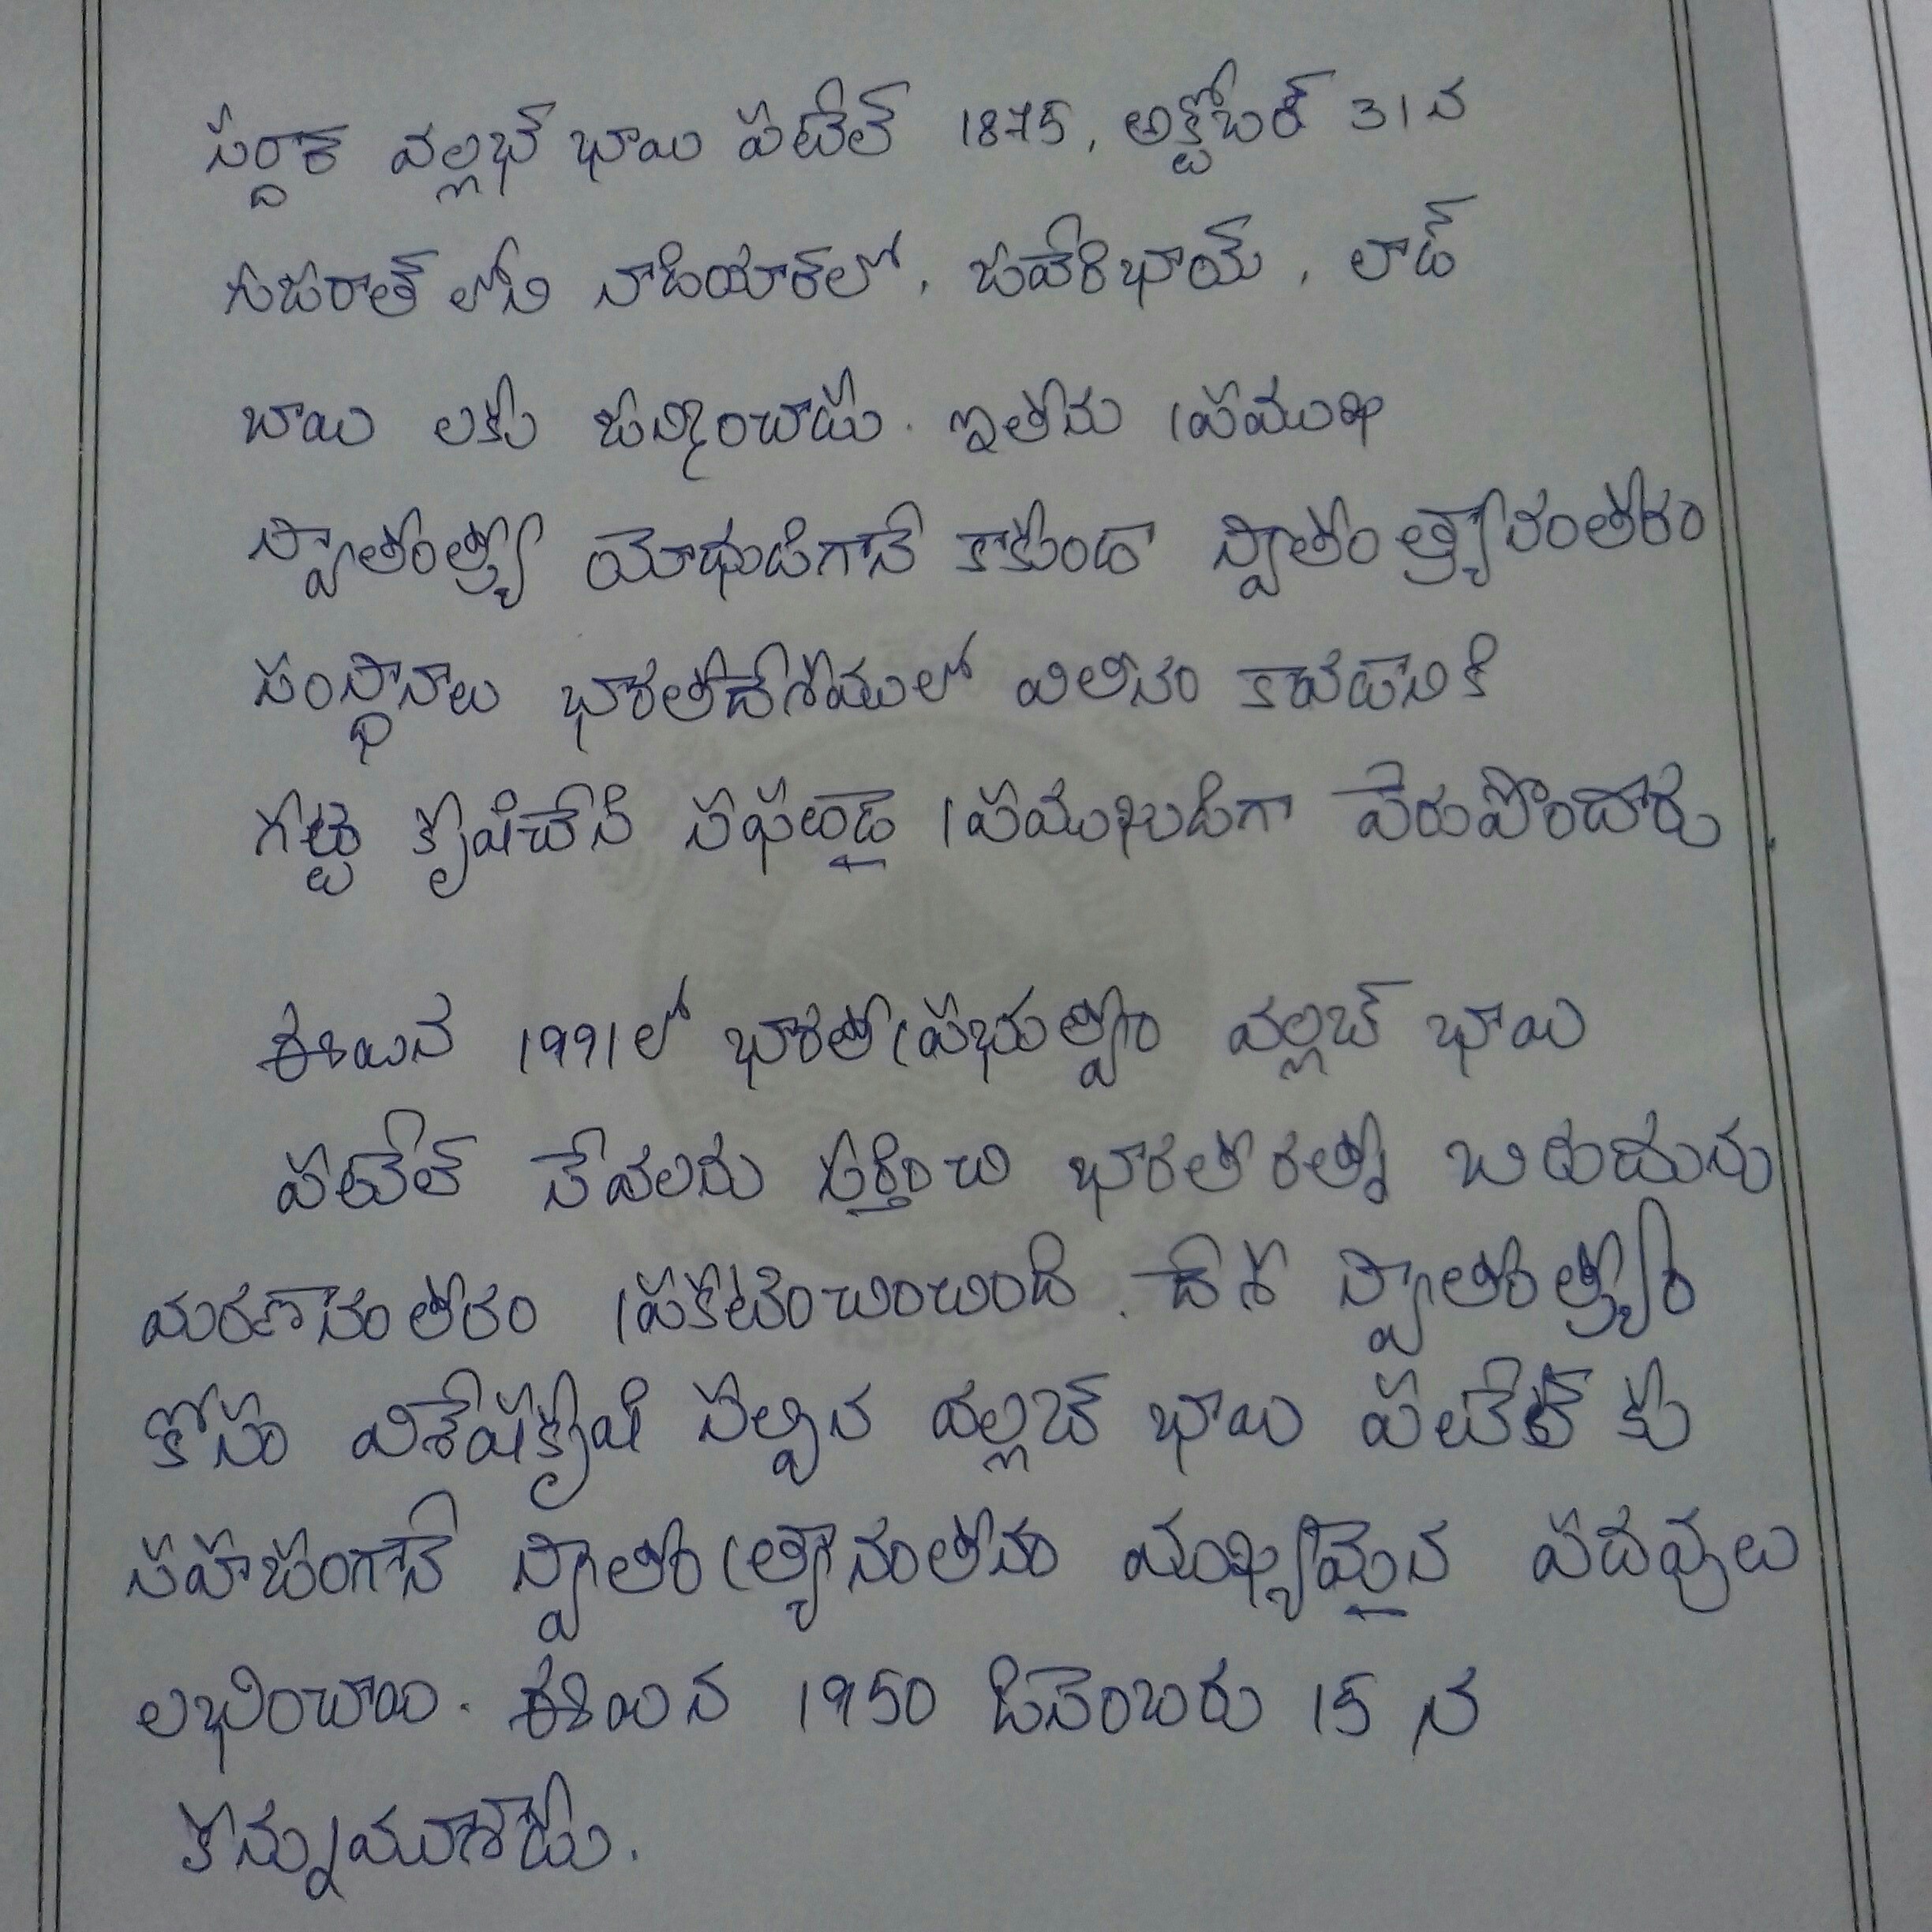 సర్దార్ వల్లభ్ భాయి పటేల్ 1875, అక్టోబర్ 31న
గుజరాత్ లోని నాడియార్‌లో, జవేరిభాయ్, లాడ్
బాయి లకు జన్మించాడు. ఇతను ప్రముఖ
స్వాతంత్ర్య యోధుడిగానే కాకుండా స్వాతంత్ర్యానంతరం
సంస్థానాలు భారతదేశములో విలీనం కావడానికి
గట్టి కృషిచేసి సఫలుడై ప్రముఖుడిగా పేరుపొందారు.
ఈయన 1991లో భారతప్రభుత్వం వల్లబ్ భాయి
పటేల్ సేవలను గుర్తించి భారతరత్న బిరుదును
మరణానంతరం ప్రకటించించింది. దేశ స్వాతంత్ర్యం
కోసం విశేషకృషి సల్పిన వల్లబ్ భాయి పటేల్ కు
సహజంగానే స్వాతంత్ర్యానంతనం ముఖ్యమైన పదవులు
లభించాయి. ఈయన 1950 డిసెంబరు 15 న
కన్నుమూశాడు.